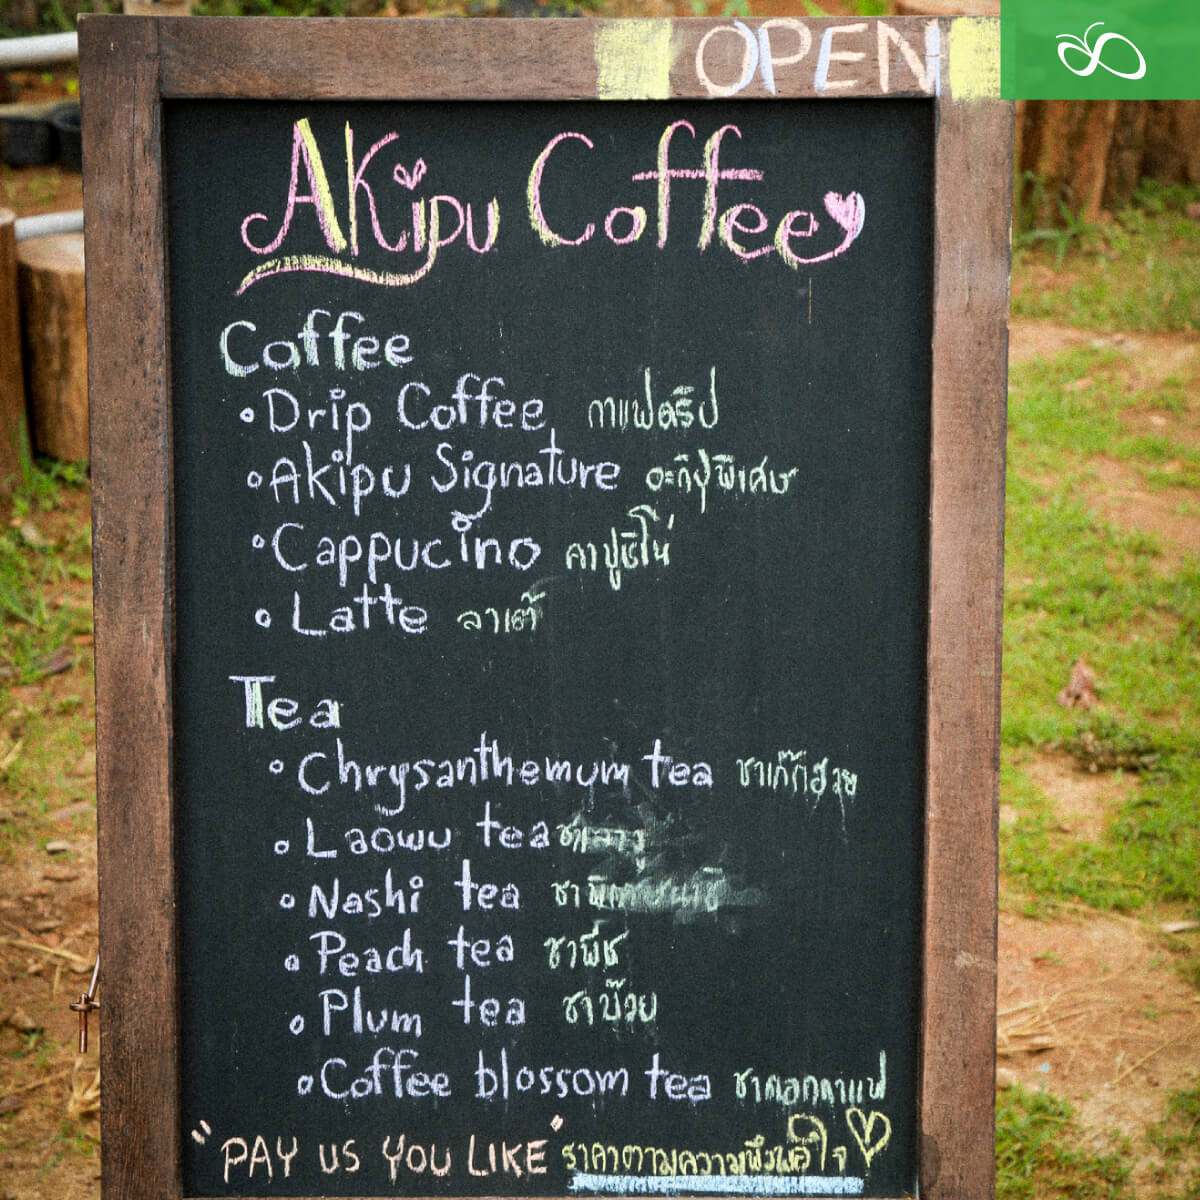 OPEN
Akipu Coffee
Coffee
Drip Coffee กาแฟดริป
Akipu Signature อะกิปุพิเศษ
Cappucino คาปูชิโน่
Latte ลาเต้
Tea
Chrysanthemum tea ชาเก๊กฮวย
Laowu tea
Nashi tea
Peach tea ชาพีช
Plum tea ชาบ๊วย
Coffee blossom tea ชาดอกกาแฟ
"PAY US YOU LIKE" ราคาตามความพึงพอใจ